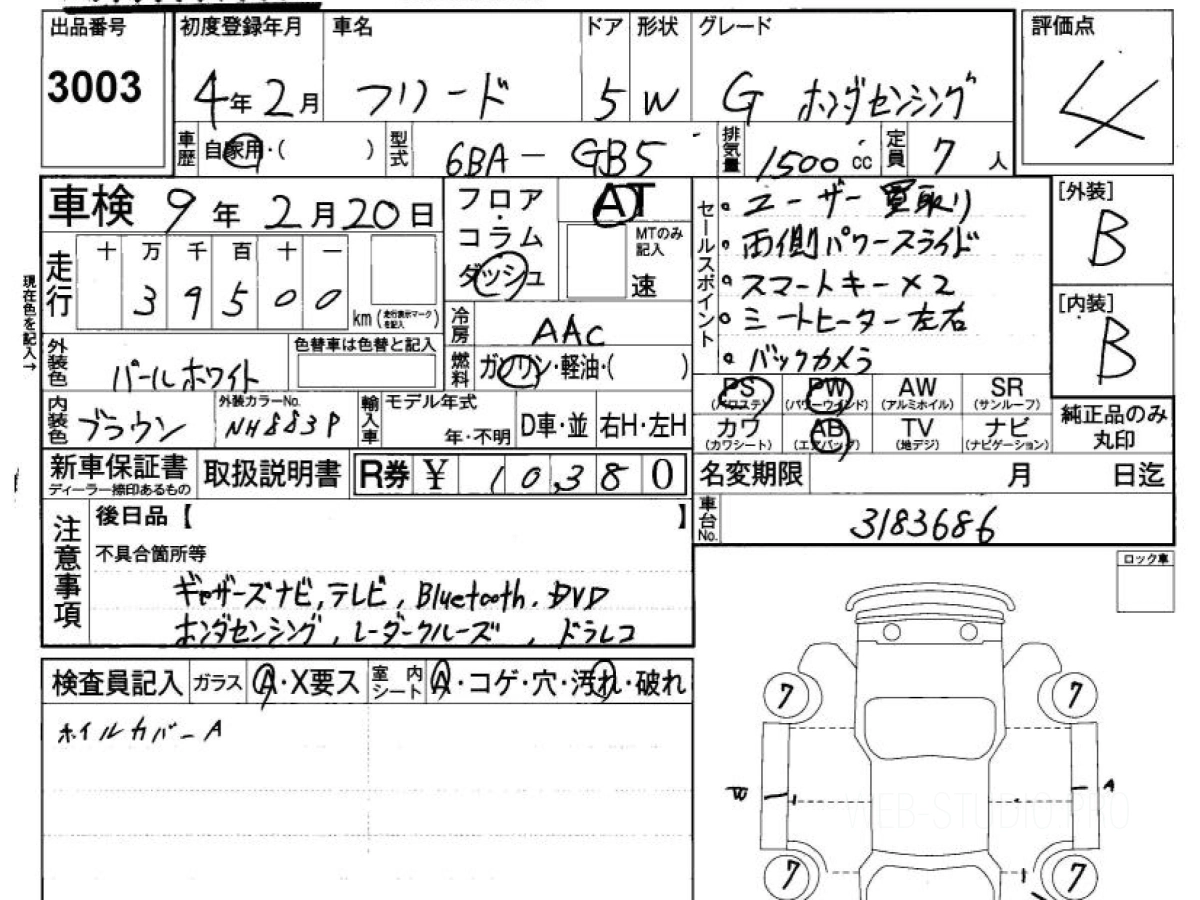 出品番号
3003
初度登録年月
4年2月
車名
フリード
ドア
5
形状
W
グレード
G ホンダセンシング
評価点
4
車歴
自家用・( )
型式
6BA-GB5
排気量
1500cc
定員
7人
車検 9年2月20日
フロア・コラム
ダッシュ
AT
MTのみ記入
速
セールスポイント
・ユーザー買取り
・両側パワースライド
・スマートキー×2
・シートヒーター左右
・バックカメラ
[外装]
B
[内装]
B
現在色を記入→
走行
十万千百十一
39500
km(走行表示マークを記入)
冷房
AAC
燃料
ガソリン・軽油・( )
外装色
パールホワイト
色替車は色替と記入
PS
(パワステ)
PW
(パワーウインド)
AW
(アルミホイル)
SR
(サンルーフ)
カワ
(カワシート)
AB
(エアバッグ)
TV
(地デジ)
ナビ
(ナビゲーション)
純正品のみ
丸印
内装色
ブラウン
外装カラーNo.
NH883P
輸入車
モデル年式
年・不明
D車・並
右H・左H
新車保証書
ディーラー捺印あるもの
取扱説明書
R券 ¥ 10,380
名変期限
月 日迄
車台No.
3183686
注意事項
後日品【 】
不具合箇所等
ギャザーズナビ,テレビ,Bluetooth,DVD
ホンダセンシング,レーダークルーズ,ドラレコ
ロック車
検査員記入
ガラス
A・X要ス
室内シート
A・コゲ・穴・汚れ・破れ
ホイルカバーA
7
7
W
A
7
7
WEB-STUDIO.PRO